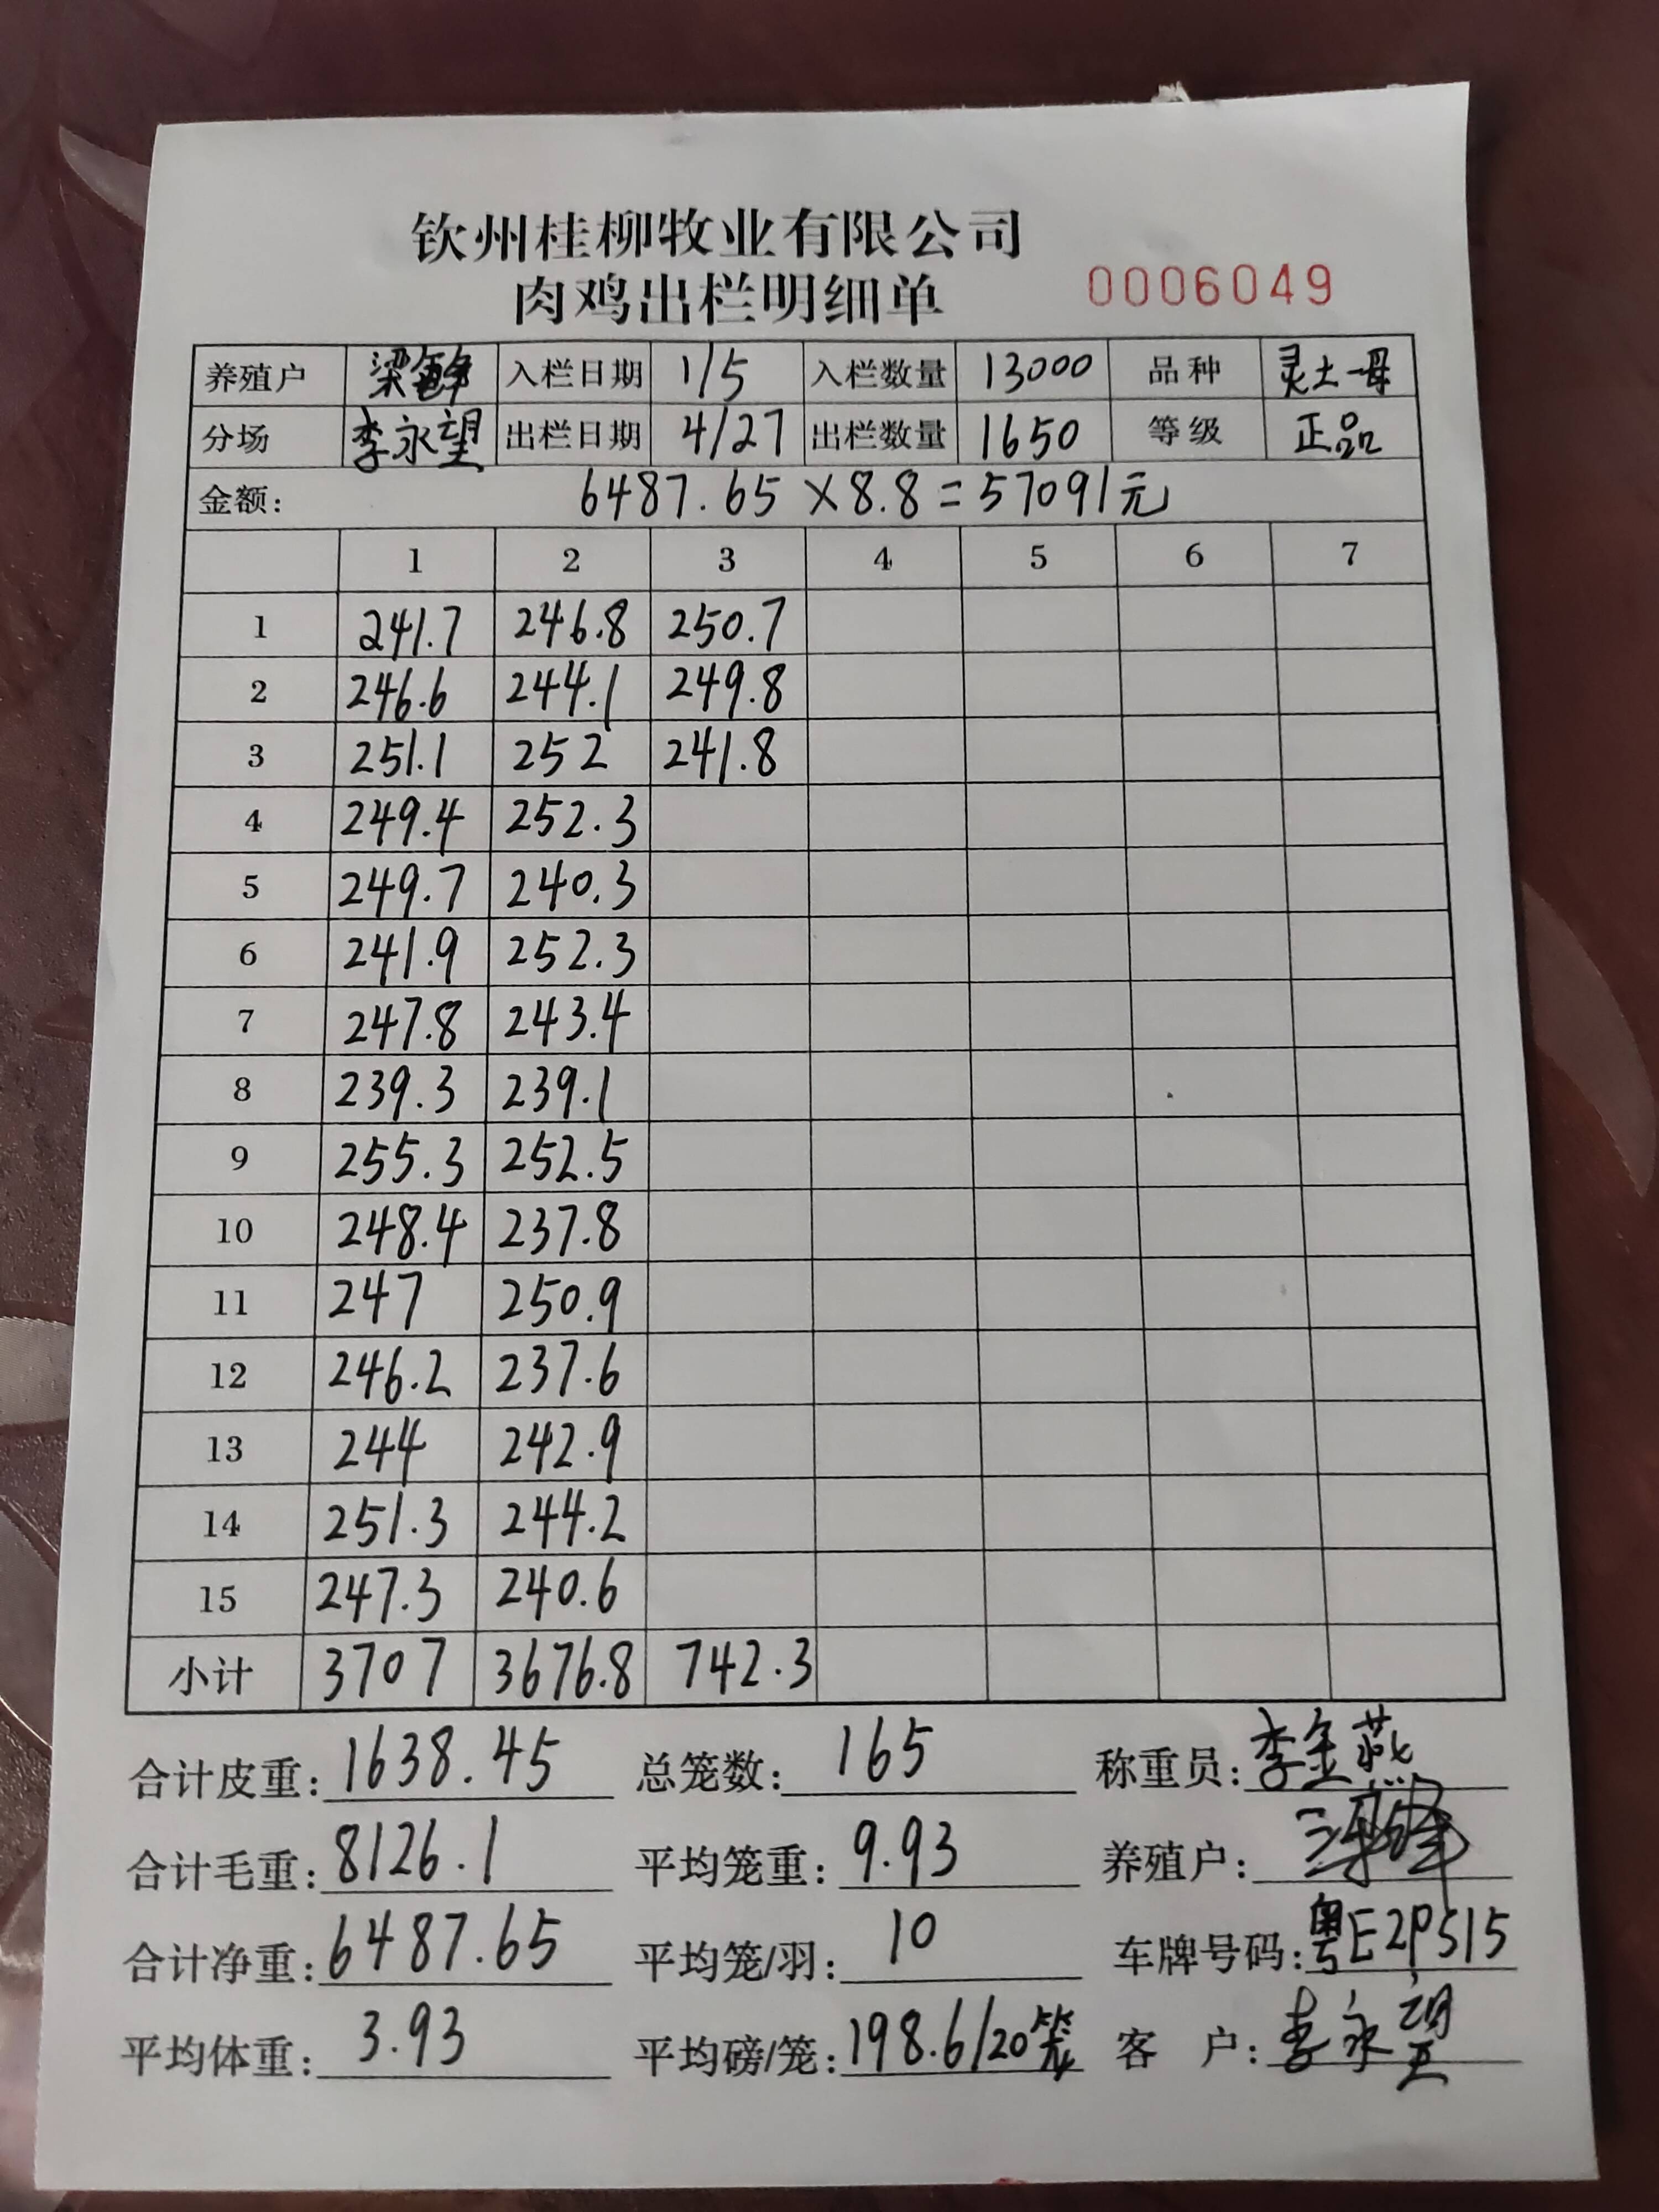 钦州桂柳牧业有限公司
肉鸡出栏明细单 0006049
养殖户 梁 入栏日期 1/5 入栏数量 13000 品种 灵土母
分场 李永望 出栏日期 4/27 出栏数量 1650 等级 正品
金额: 6487.65×8.8=57091元
1 2 3 4 5 6 7
1 241.7 246.8 250.7
2 246.6 244.1 249.8
3 251.1 252 241.8
4 249.4 252.3
5 249.7 240.3
6 241.9 252.3
7 247.8 243.4
8 239.3 239.1
9 255.3 252.5
10 248.4 237.8
11 247 250.9
12 246.2 237.6
13 244 242.9
14 251.3 244.2
15 247.3 240.6
小计 3707 3676.8 742.3
合计皮重: 1638.45 总笼数: 165 称重员: 李金燕
合计毛重: 8126.1 平均笼重: 9.93 养殖户:
合计净重: 6487.65 平均笼/羽: 10 车牌号码: 粤E2P515
平均体重: 3.93 平均磅/笼: 198.6/20笼 客户: 李永望